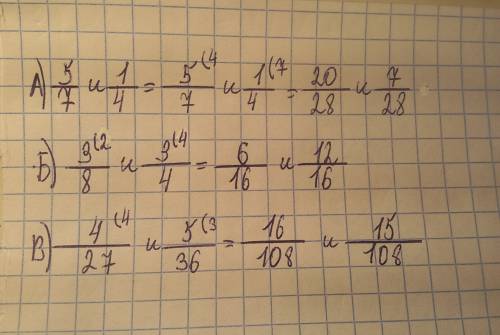 А) 5/7 и 1/4 = 5(4/7 и 1(7/4 = 20/28 и 7/28
Б) 3(2/8 и 3(4/4 = 6/16 и 12/16
В) 4(4/27 и 5(3/36 = 16/108 и 15/108